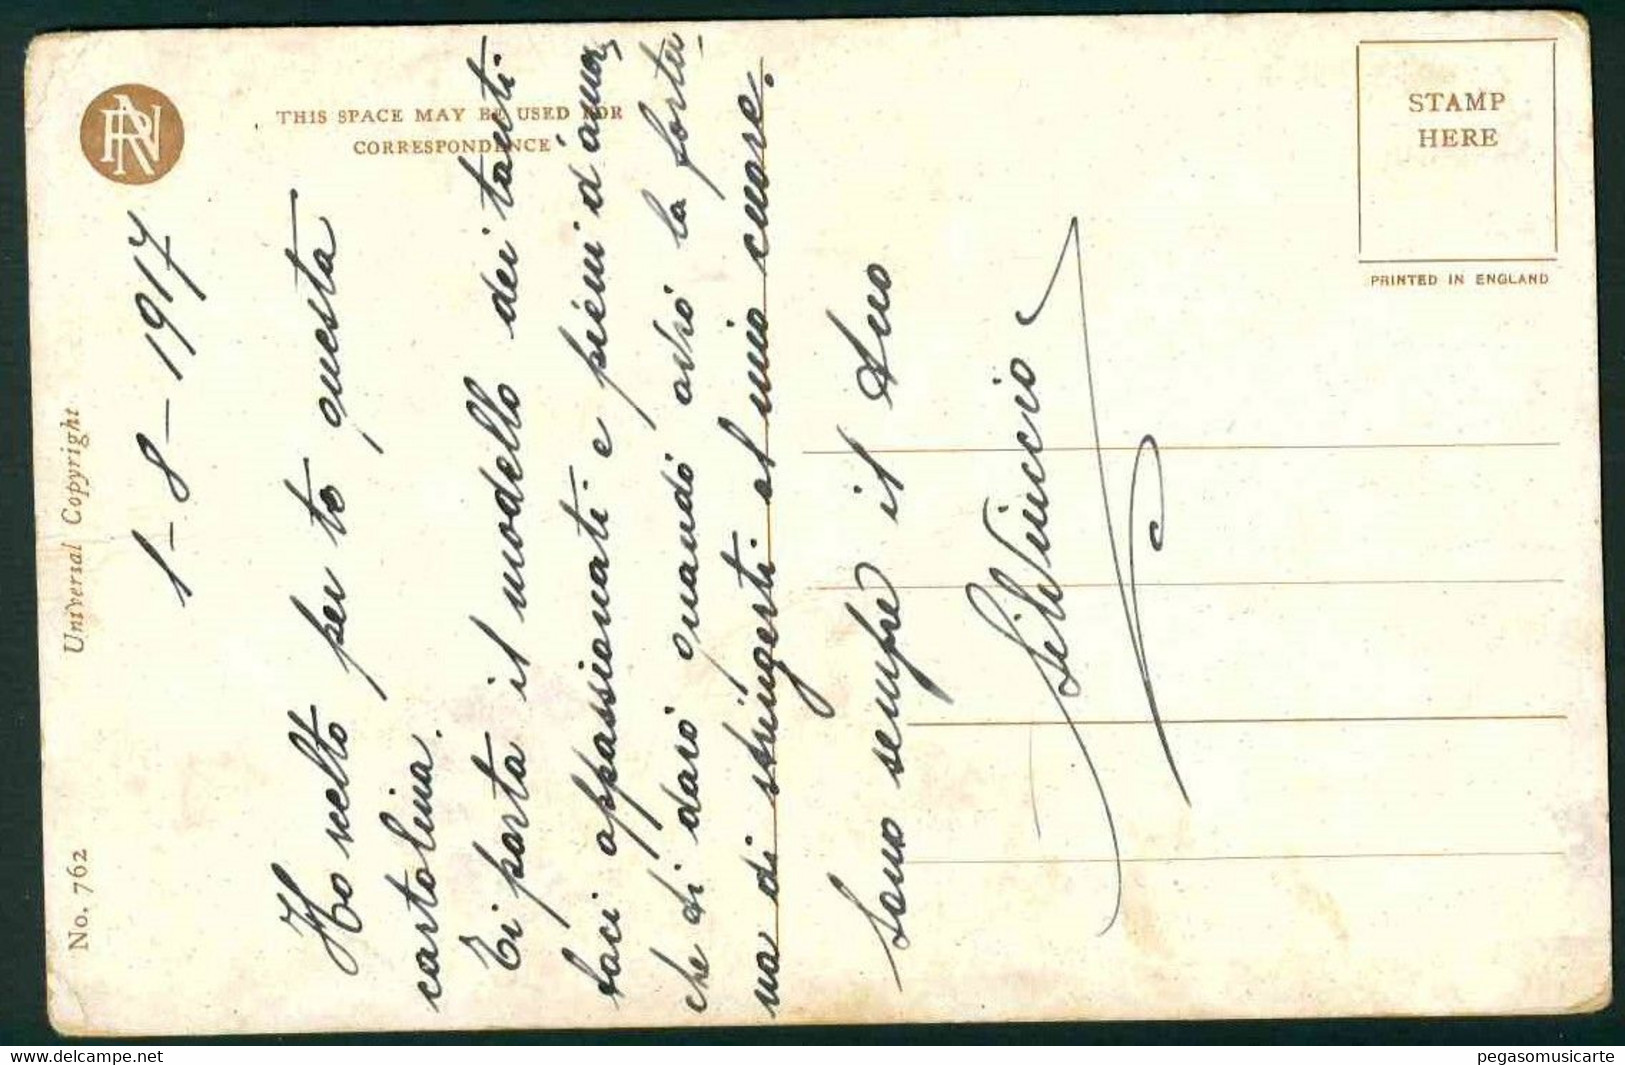 No. 762
Universal Copyright
THIS SPACE MAY BE USED FOR
CORRESPONDENCE
STAMP
HERE
PRINTED IN ENGLAND
1-8-1917
Ho scelto per te questa
cartolina.
Ti porta il modello dei tanti
baci appassionati e pieni d'amor,
che ti darò quando avrò la fortu-
na di stringerti al mio cuore.
Sono sempre il tuo
Silvinuccio
pegasomusicarte